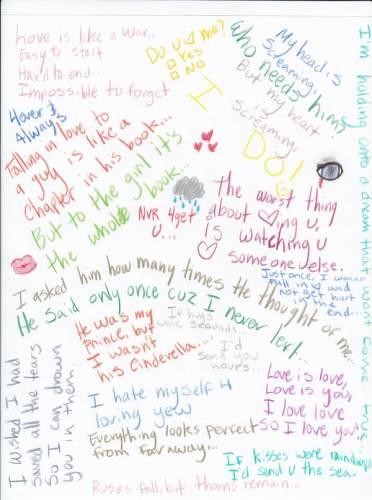 Love is like a war...
Easy to start.
Hard to end...
Impossible to forget
Do u me?
Yes
No
My head is
Screaming,
Who needs him?
But my heart
is
Screaming,
I
DO!
I'm holding onto a dream that won't come true...
4ever &
Always
Falling in love to
a guy is like a
chapter in his book...
But to the girl it's
the whole book...
Nvr 4get
u...
the worst thing
about ing u,
is watching u
someone else.
I asked him how many times He thought of me..
He Said only once cuz I never left..
Just once, I wanna
fall in and
not get hurt
in the
end...
He was my
Prince, but
I wasn't
his Cinderella...
If hugs
were seconds...
I'd
send you
hours...
I wished I had
saved all the tears
So I can drown
you in them.
I hate myself 4
loving yew
Love is love,
Love is you,
I love love
So I love you
Everything looks perfect
from far away...
If kisses were raindrops
I'd send u the sea.
Roses fall, but thorns remain...